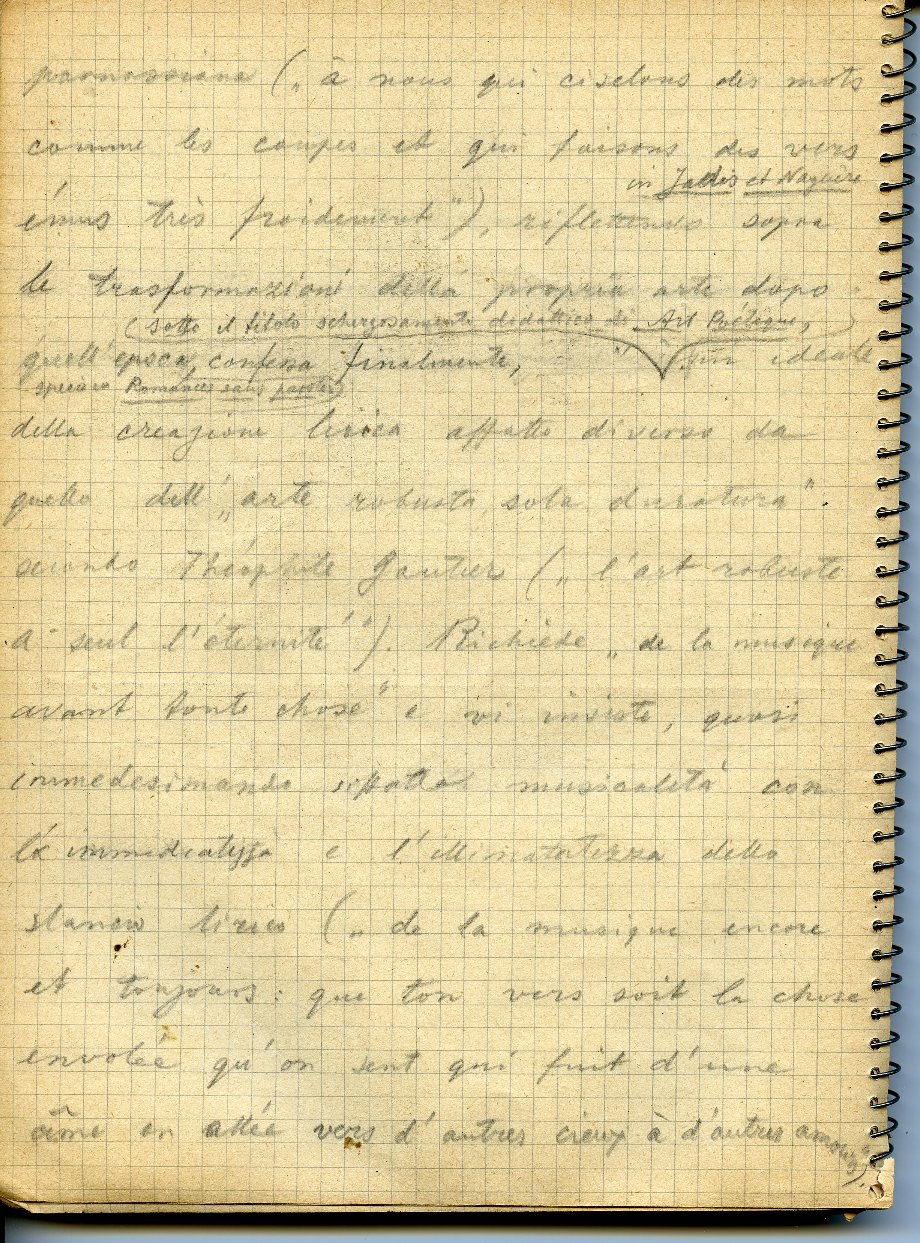 parnassiana („ à nous qui ciselons des mots
comme les coupes et qui faisons des vers
in Jadis et Naguère
émus très froidement"), riflettendo sopra
le trasformazioni della propria arte dopo
(sotto il titolo scherzosamente didattico di Art Poétique,
quell'epoca, confessa finalmente, un ideale
Romances sans paroles)
della creazione lirica affatto diverso da
quello dell' „arte robusta, sola duratura".
secondo Théophile Gautier („ l'art robuste
a seul l'éternité"). Richiede „ de la musique
avant toute chose" e vi insiste, quasi
immedesimando siffatta musicalità con
la immediatezza e l'illimitatezza dello
slancio lirico („ de la musique encore
et toujours: que ton vers soit la chose
envolée qu'on sent qui fuit d'une
âme en allée vers d'autres cieux à d'autres amours").